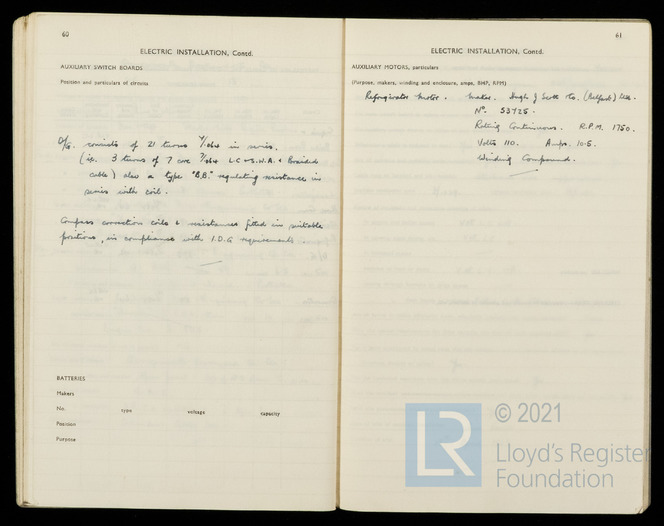 60
ELECTRIC INSTALLATION, Contd.
AUXILIARY SWITCH BOARDS
Position and particulars of circuits
consists of 21 turns in series.
(i.e. 3 turns of 7 core L C & S.W.A. & Braided
cable) also a type "B.B." regulating resistance in
series with coil.
Compass correction coils & resistances fitted in suitable
positions, in compliance with I.D.G requirements
BATTERIES
Makers
No. type voltage capacity
Position
Purpose
61
ELECTRIC INSTALLATION, Contd.
AUXILIARY MOTORS, particulars
(Purpose, makers, winding and enclosure, amps, BHP, RPM)
Refrigerator Motor. Maker. Hugh J Scott & Co. (Belfast) Ltd.
No. 53725.
Rating Continuous. R.P.M. 1750.
Volts 110. Amps. 10.5.
Winding Compound.
LR
© 2021
Lloyd's Register
Foundation